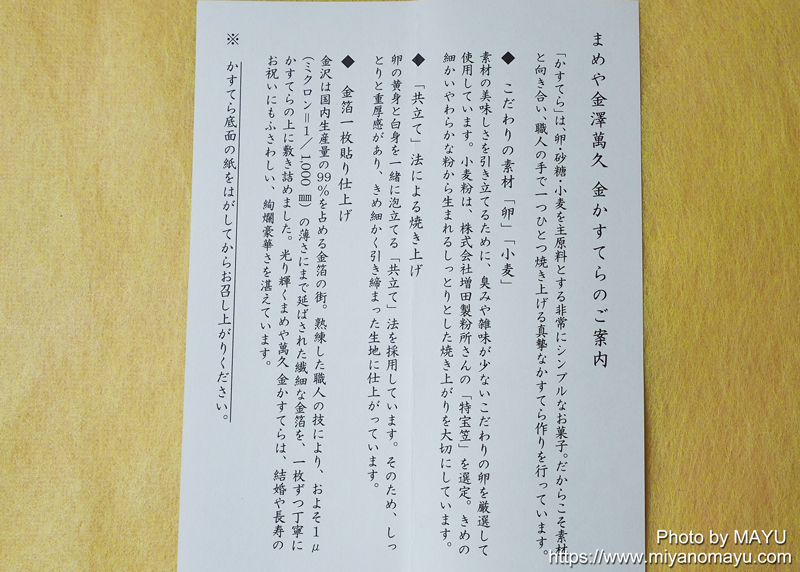 まめや金澤萬久 金かすてらのご案内
「かすてら」は、卵・砂糖・小麦を主原料とする非常にシンプルなお菓子。だからこそ素材
と向き合い、職人の手で一つひとつ焼き上げる真摯なかすてら作りを行っています。
◆ こだわりの素材「卵」「小麦」
素材の美味しさを引き立てるために、臭みや雑味が少ないこだわりの卵を厳選して
使用しています。小麦粉は、株式会社増田製粉所さんの「特宝笠」を選定。きめの
細かいやわらかな粉から生まれるしっとりとした焼き上がりを大切にしています。
◆ 「共立て」法による焼き上げ
卵の黄身と白身を一緒に泡立てる「共立て」法を採用しています。そのため、しっ
とりと重厚感があり、きめ細かく引き締まった生地に仕上がっています。
◆ 金箔一枚貼り仕上げ
金沢は国内生産量の99％を占める金箔の街。熟練した職人の技により、およそ1μ
（ミクロン＝1／1,000㎜）の薄さにまで延ばされた繊細な金箔を、一枚ずつ丁寧に
かすてらの上に敷き詰めました。光り輝くまめや萬久 金かすてらは、結婚や長寿の
お祝いにもふさわしい、絢爛豪華さを湛えています。
※ かすてら底面の紙をはがしてからお召し上がりください。
Photo by MAYU
https://www.miyanomayu.com/